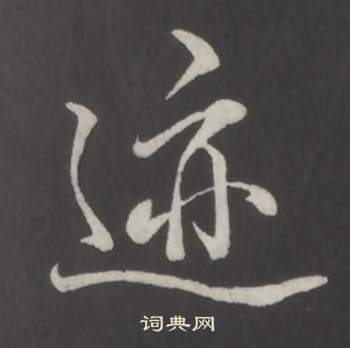 迹
词典网